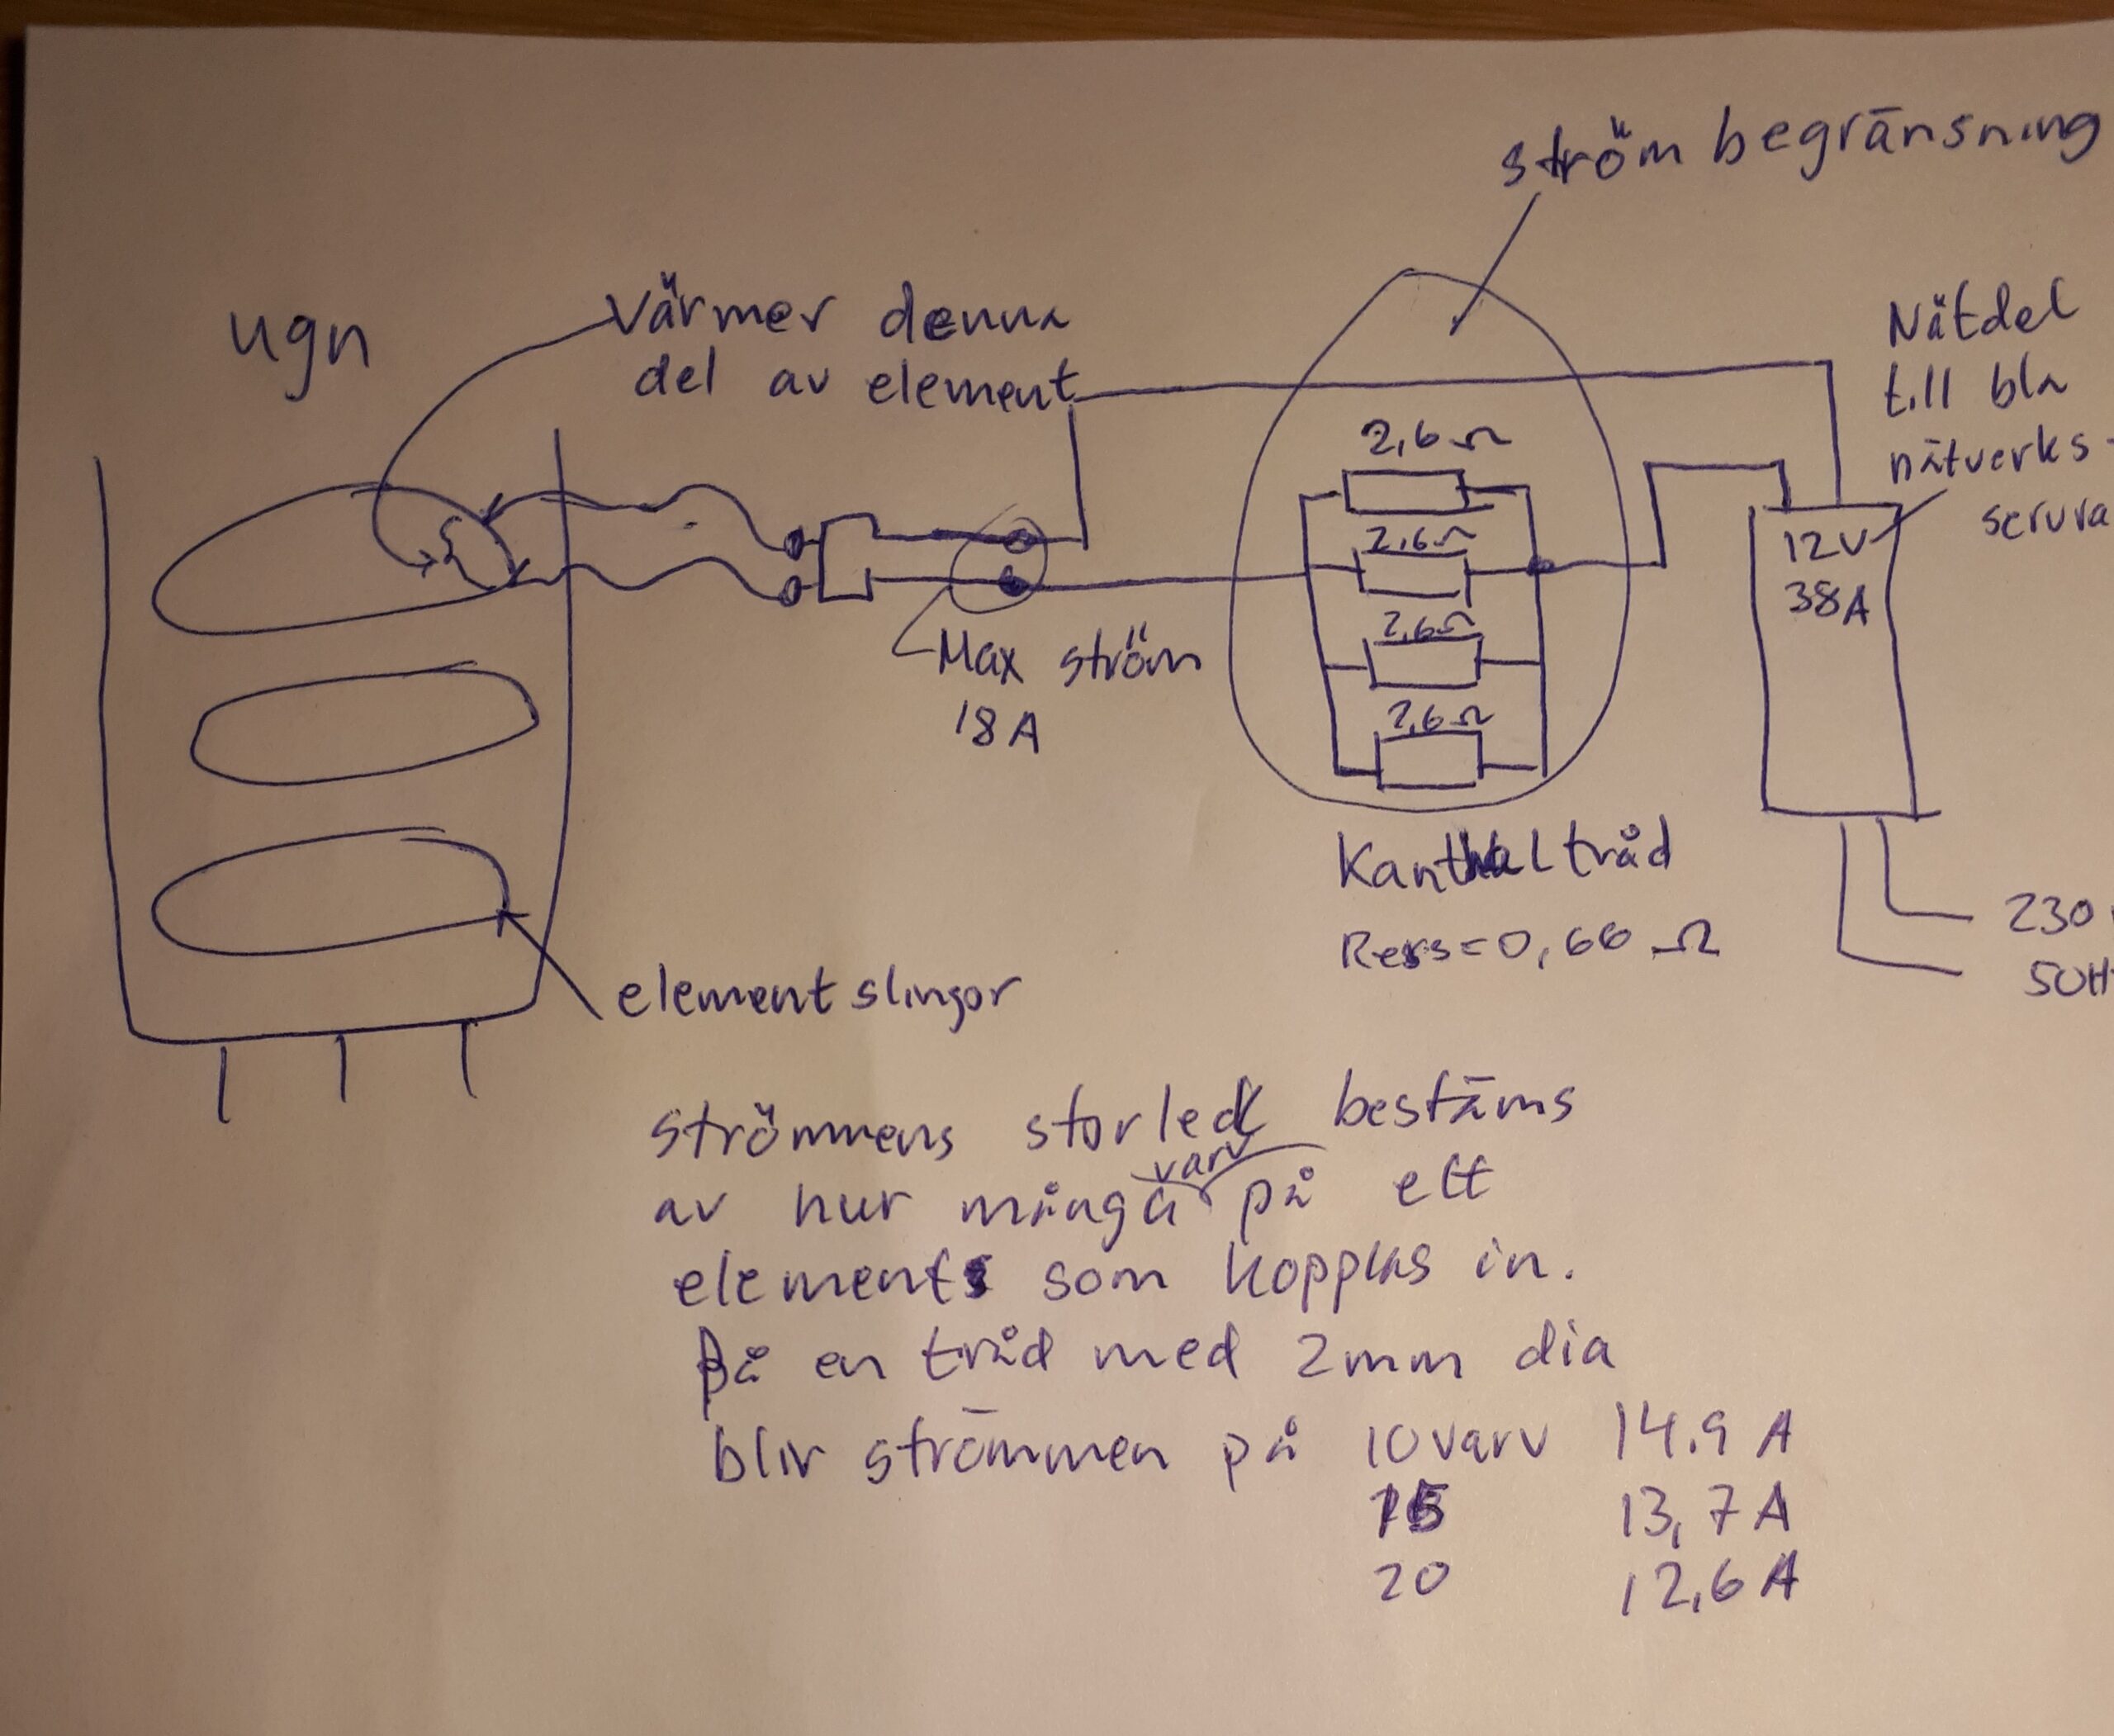 ström begränsning
ugn
Värmer denna
del av element
Nätdel
till bla
nätverks-
servra
2,6 Ω
2,6 Ω
2,6 Ω
2,6 Ω
12V
38A
Max ström
18 A
Kanthal tråd
Rers=0,66 Ω
230
50H
element slingor
Strömmens storlek bestäms
av hur många varv på ett
element som kopplas in.
På en tråd med 2mm dia
blir strömmen på 10 varv 14.9 A
15 13,7 A
20 12,6 A